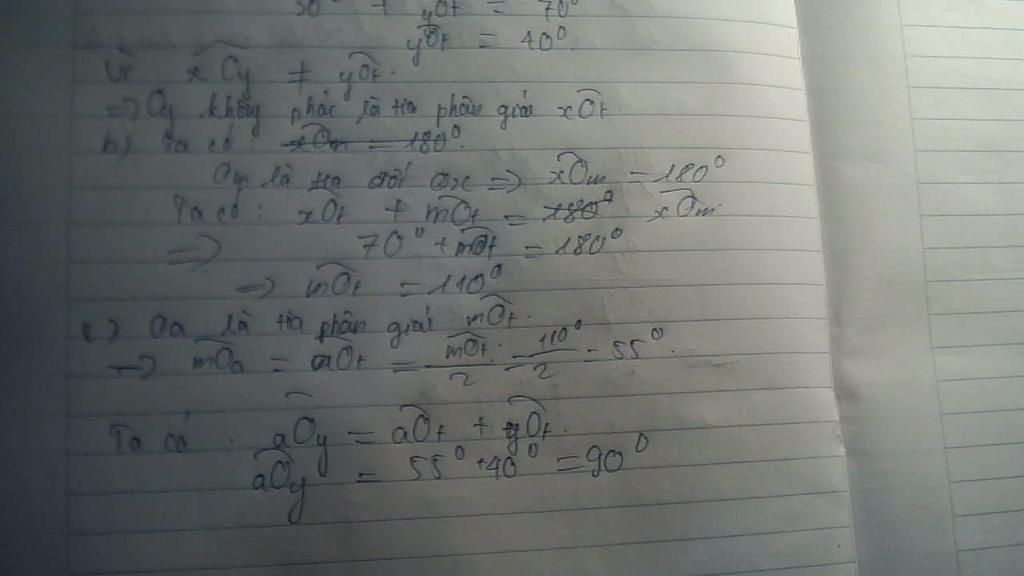 30° + yOt = 70°
yOt = 40°
Vì xOy ≠ yOt.
=> Oy không phải là tia phân giác xOt.
b) Ta có: xOm = 180°.
Om là tia đối Ox => xOm = 180°
Ta có: xOt + mOt = 180° xOm.
=> 70° + mOt = 180°
=> mOt = 110°
c) Oa là tia phân giác mOt.
=> mOa = aOt = mOt/2 = 110°/2 = 55°.
Ta có: aOy = aOt + yOt.
aOy = 55° + 40° = 90°